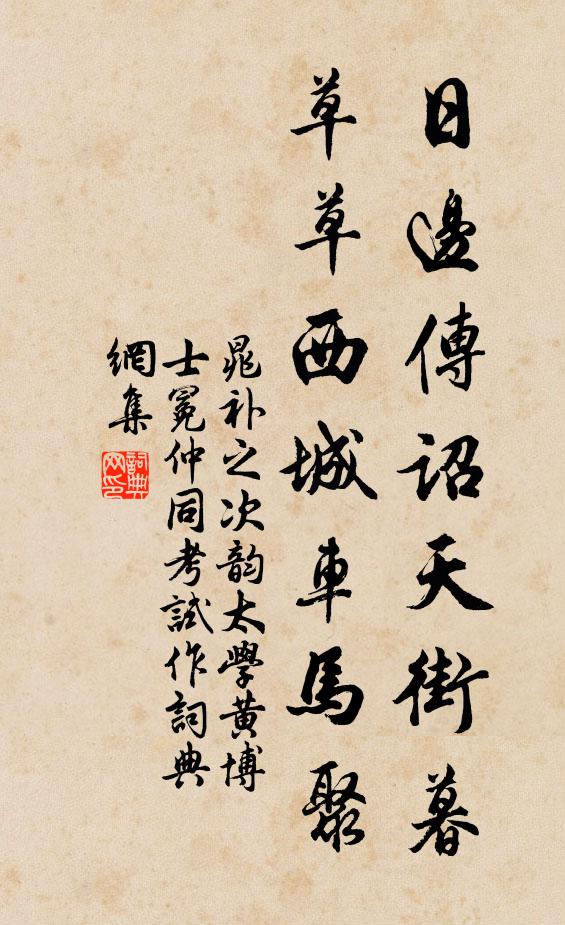 日邊傳詔天街暮
草草西城車馬聚
晁补之次韵太學黃博
士冕仲同考試作詞典
網集
詞典网印